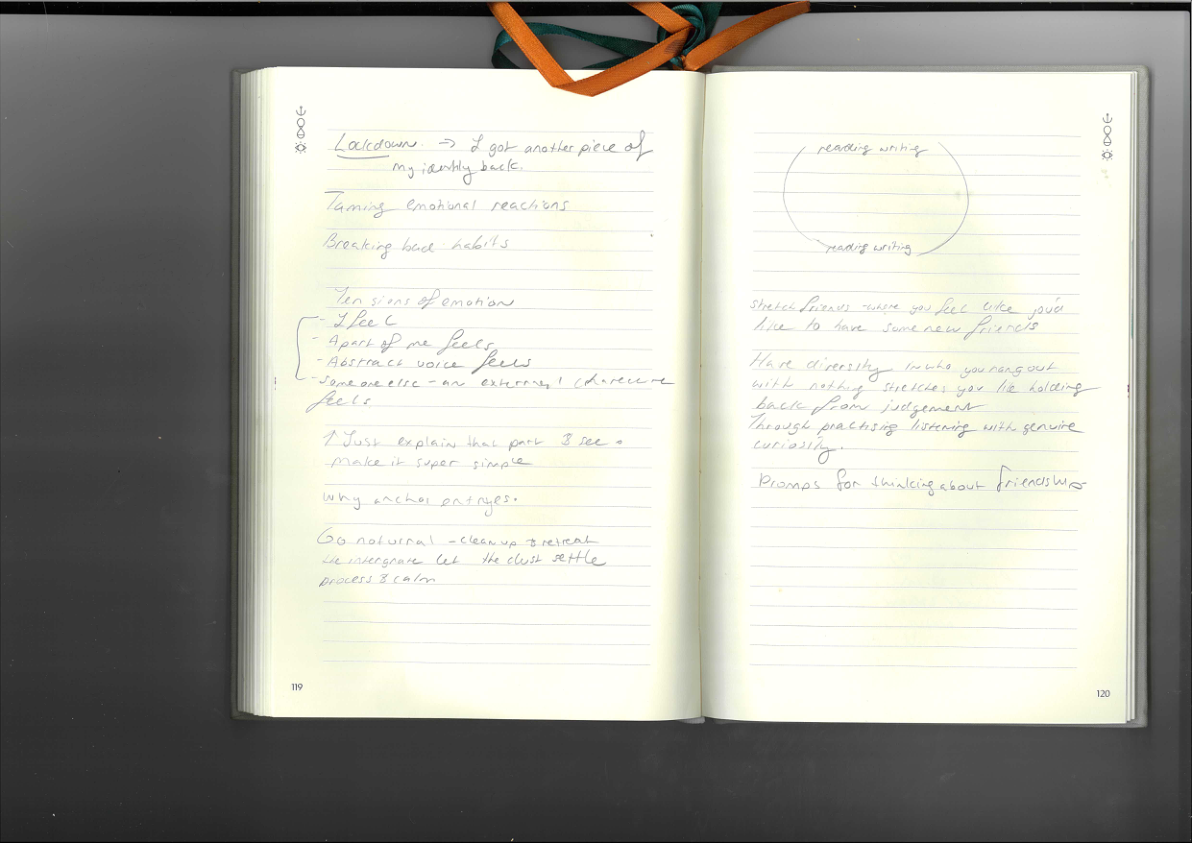 Lockdown → I got another piece of
my identity back.
Taming emotional reactions
Breaking bad habits
Tensions of emotion
- I feel
- A part of me feels
- Abstract voice feels
- Someone else - an external
feels
↑ Just explain that part & see
make it super simple
why anchor
Go - clean up & retreat
let the dust settle
process & calm
119
reading writing
reading writing
Stretch friends - where you feel like you'd
like to have some new friends
Have diversity in who you hang out
with nothing stretches you like holding
back from judgement
Through practising listening with genuine
curiosity.
Promps for thinking about
120